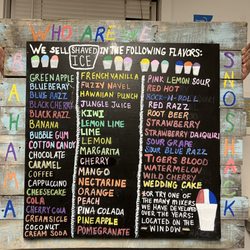 WHO ARE WE
WE SELL SHAVED ICE IN THE FOLLOWING FLAVORS:
GREEN APPLE
BLUEBERRY
BLUE RAZZ
BLACK CHERRY
BLACK RAZZ
BANANA
BUBBLE GUM
COTTON CANDY
CHOCOLATE
CARAMEL
COFFEE
CAPPUCCINO
CHEESECAKE
COLA
CHERRY COLA
CREAMSICLE
COCONUT
CREAM SODA
FRENCH VANILLA
FUZZY NAVEL
HAWAIIAN PUNCH
JUNGLE JUICE
KIWI
LEMON LIME
LIME
LEMON
MARGARITA
CHERRY
MANGO
NECTARINE
ORANGE
PEACH
PINA COLADA
PINEAPPLE
POMEGRANATE
PINK LEMON SOUR
RED HOT
ROCK-N-ROLL
RED RAZZ
ROOT BEER
STRAWBERRY
STRAWBERRY DAIQUIRI
SOUR GRAPE
SOUR BLUE RAZZ
TIGERS BLOOD
WATERMELON
WILD CHERRY
WEDDING CAKE
OR TRY ONE OF
THE MANY MIXERS
WE HAVE DEVELOPED
OVER THE YEARS
LOCATED ON THE
WINDOW